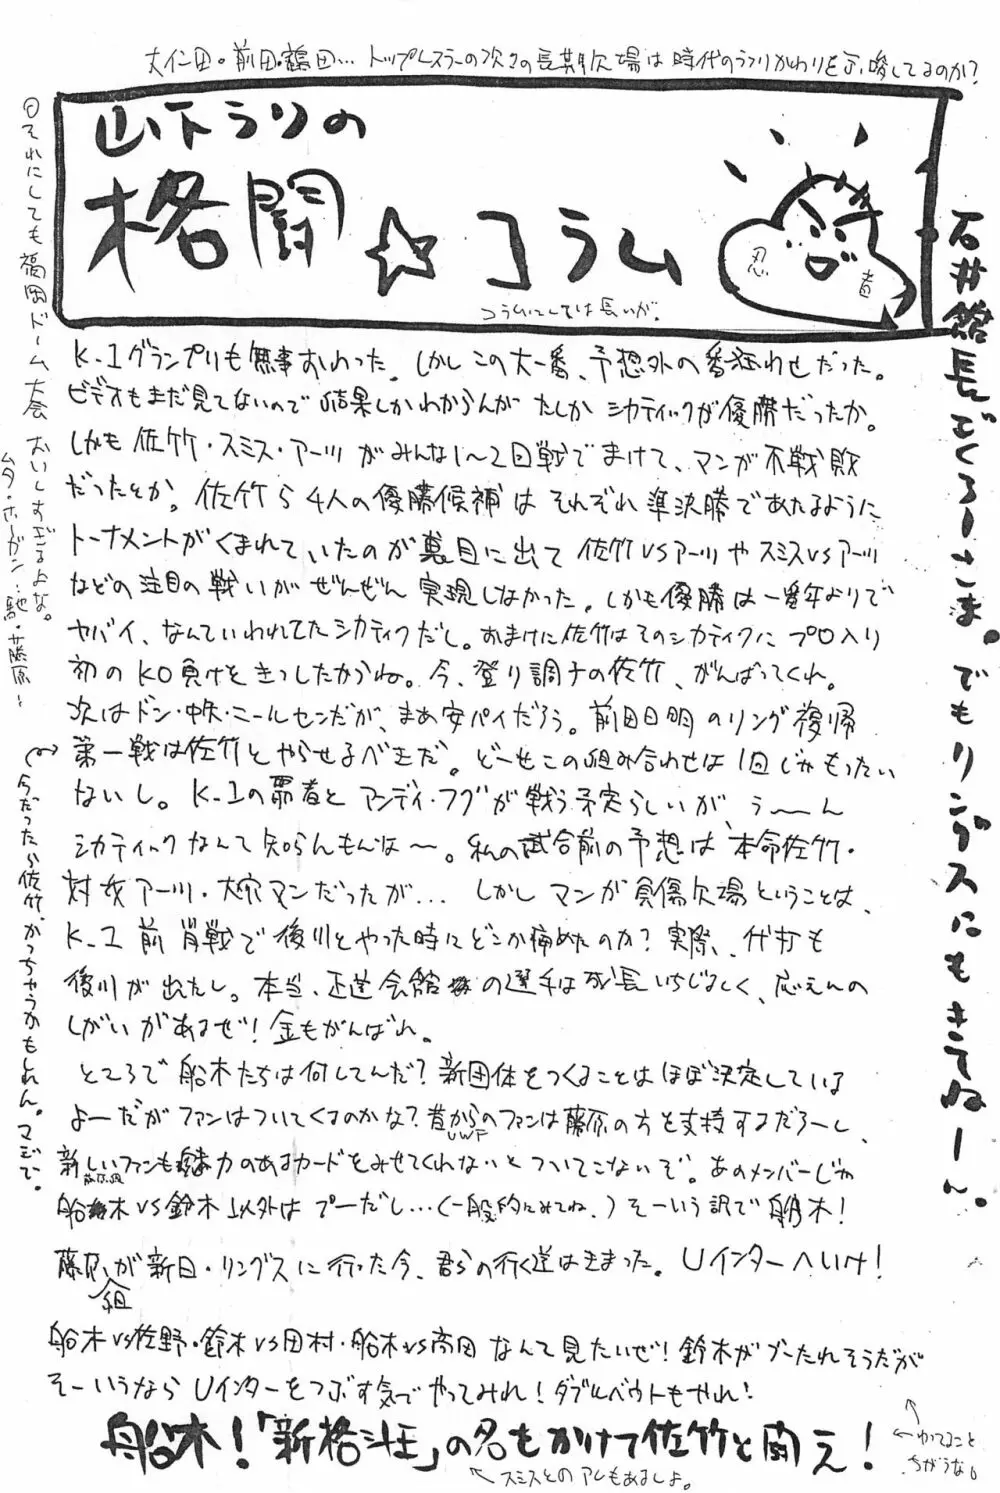 大仁田。前田・鶴田… トップレスラーの次々の長期欠場は時代のうつりかわりを示唆してるのか?
山下うりの
格闘☆コラム
忍 者
コラムにしては長いが。
石井館長ごくろーさま。でもリングスにもきてねーん。
◎それにしても福岡ドーム大会おいしすぎるよな。
ムタ・ホーガン・馳・藤原~
K-1グランプリも無事おわった。しかしこの大一番、予想外の番狂わせだった。
ビデオもまだ見てないので結果しかわからんが たしか シカティックが優勝だったか。
しかも 佐竹・スミス・アーツ がみんな1~2回戦でまけて、マンが不戦敗
だったとか。佐竹ら4人の優勝候補は それぞれ準決勝であたるように
トーナメントがくまれていたのが裏目に出て 佐竹VSアーツや スミスVSアーツ
などの注目の戦いが ぜんぜん 実現しなかった。しかも優勝は一番年よりで
ヤバイ、なんていわれてたシカティクだし。おまけに佐竹はそのシカティクに プロ入り
初のKO負けをきっしたからね。今、登り調子の佐竹、がんばってくれ。
次はドン・中矢・ニールセンだが、まあ安パイだろう。前田日明のリング復帰
第一戦は佐竹とやらせるべきだ。どーもこの組み合わせは1回じゃもったい
ないし。K-1の覇者と アンディ・フグが戦う予定らしいが、う~~ん
シカティックなんて知らんもんな~。私の試合前の予想は 本命佐竹・
対抗アーツ・大穴マンだったが... しかし マンが負傷欠場ということは、
K-1前肖戦で後川とやった時にどこか痛めたのか? 実際、代打も
後川が出たし。本当、正道会館の選手は成長いちじるしく、応えんの
しがいがあるぜ! 金もがんばれ。
ところで 船木たちは何してんだ? 新団体をつくることはほぼ決定している
よーだがファンはついてくるのかな? 昔からのファンは藤原の方を支持するだろーし、
UWF
新しいファンも魅力のあるカードをみせてくれないと ついてこないぞ。あのメンバーじゃ
藤原組
船木VS鈴木以外はプーだし…(一般的にみてね。) そーいう訳で 船木!
藤原組が新日・リングスに行った今、君らの行く道はきまった。Uインターへいけ!
船木VS佐野・鈴木VS田村・船木VS高田 なんて見たいぜ! 鈴木がブーたれそうだが
そーいうなら Uインターをつぶす気でやってみれ! ダブルベウトもやれ!
船木!「新格斗王」の名もかけて佐竹と闘え!
←スミスとのアレもあるしよ。
←ゆってること
ちがうな。
今だったら佐竹、かっちゃうかもしれん。マジで。